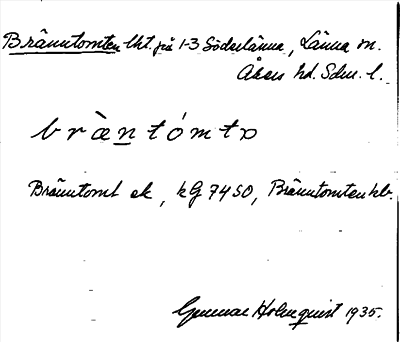 Bränntomten lht. på 1-3 Söderlänna, Länna sn.
Åkers hd. Sdm. l.
bræ̀ntómtɒ
Bränntomt ek, kG 7450, Bränntomten kb.
Gunnar Holmquist 1935.